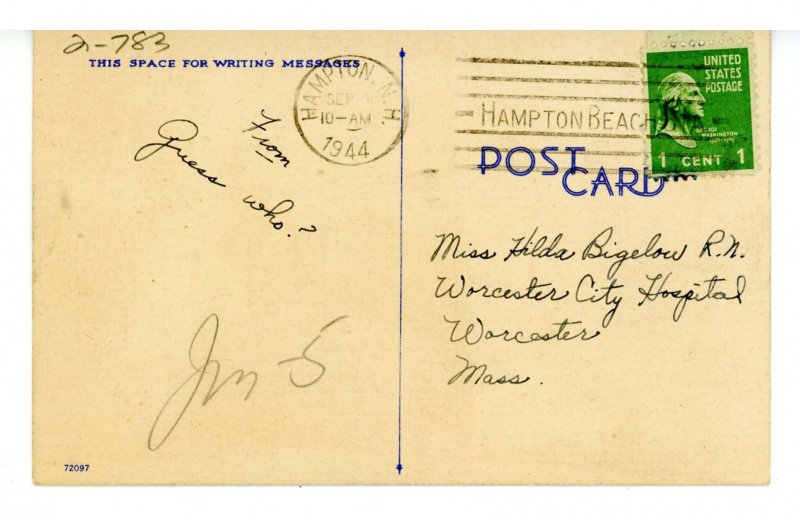 2-783
THIS SPACE FOR WRITING MESSAGES
HAMPTON, N.H.
SEP
10-AM
1944
HAMPTON BEACH
UNITED
STATES
POSTAGE
GEORGE
WASHINGTON
1 CENT 1
POST
CARD
From
Guess who?
Miss Hilda Bigelow R.N.
Worcester City Hospital
Worcester
Mass.
72097